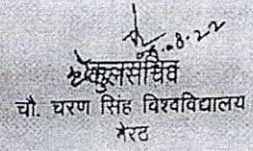 8.22
कुलसचिव
चौ. चरण सिंह विश्वविद्यालय
मेरठ